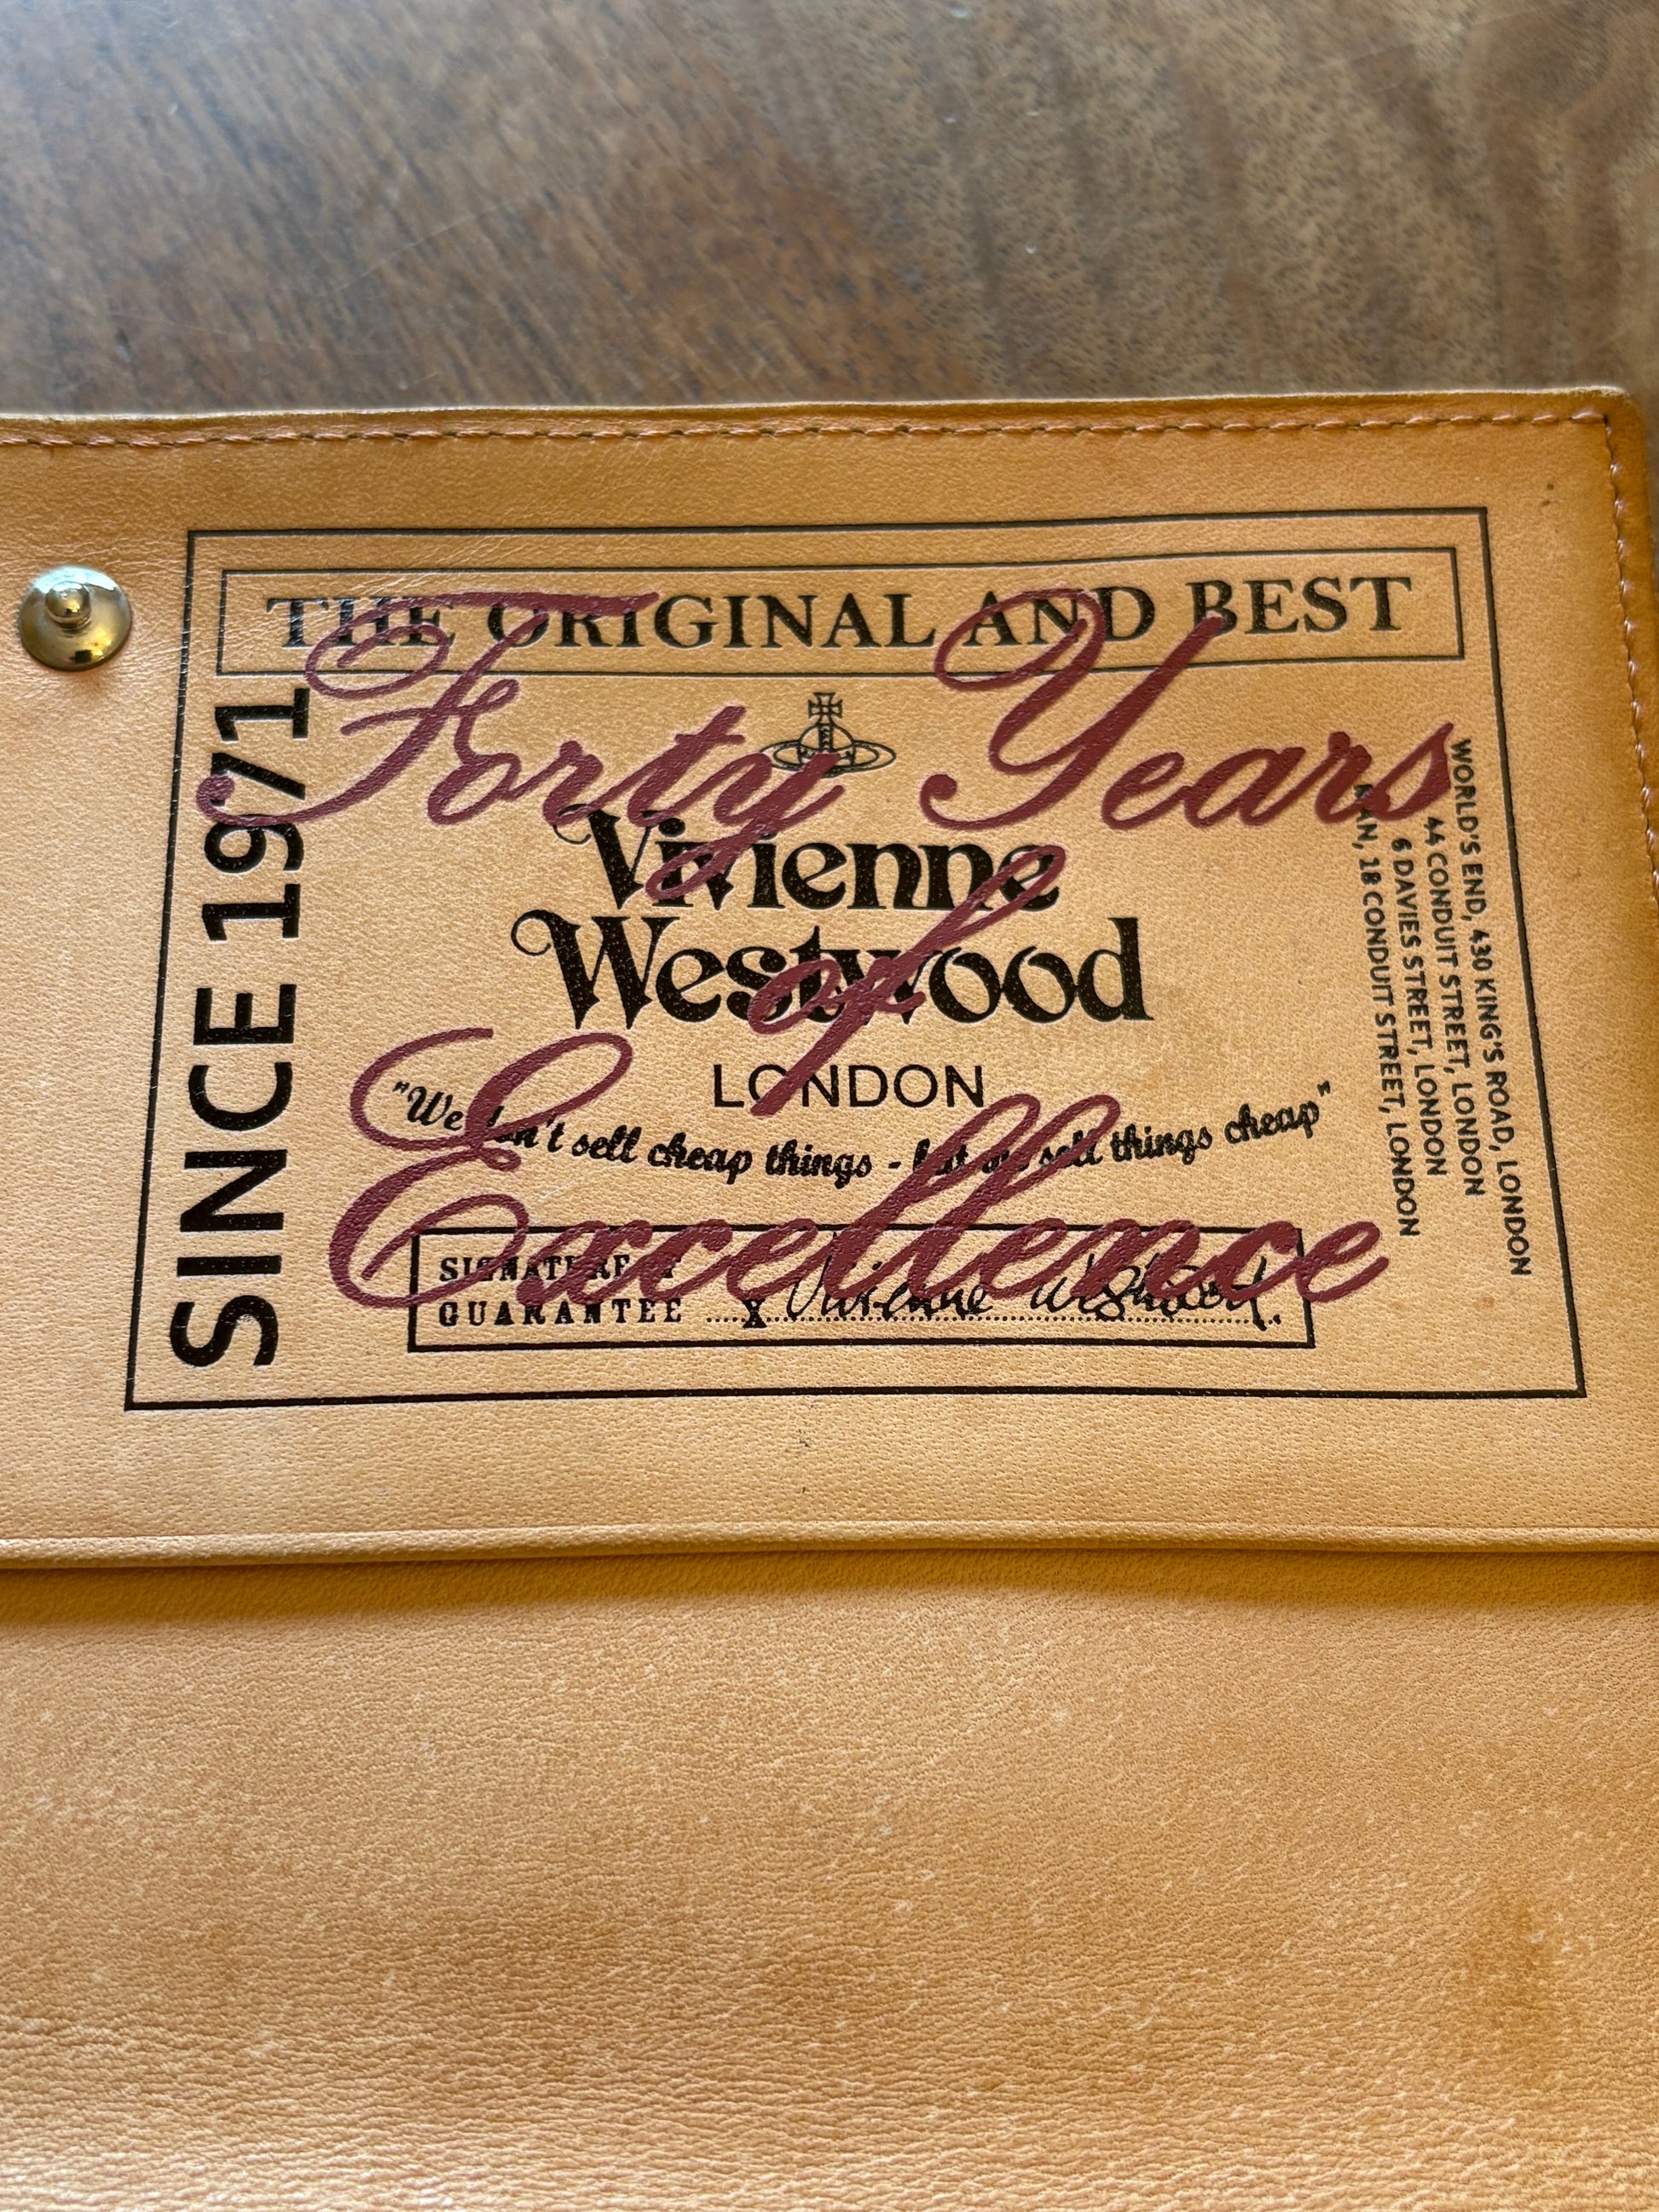 THE ORIGINAL AND BEST
SINCE 1971
Forty Years
of
Excellence
Vivienne
Westwood
LONDON
"We don't sell cheap things - but we sell things cheap"
SIGNATURE OF
GUARANTEE X Vivienne Westwood.
WORLD'S END, 430 KING'S ROAD, LONDON
44 CONDUIT STREET, LONDON
6 DAVIES STREET, LONDON
MAN, 18 CONDUIT STREET, LONDON